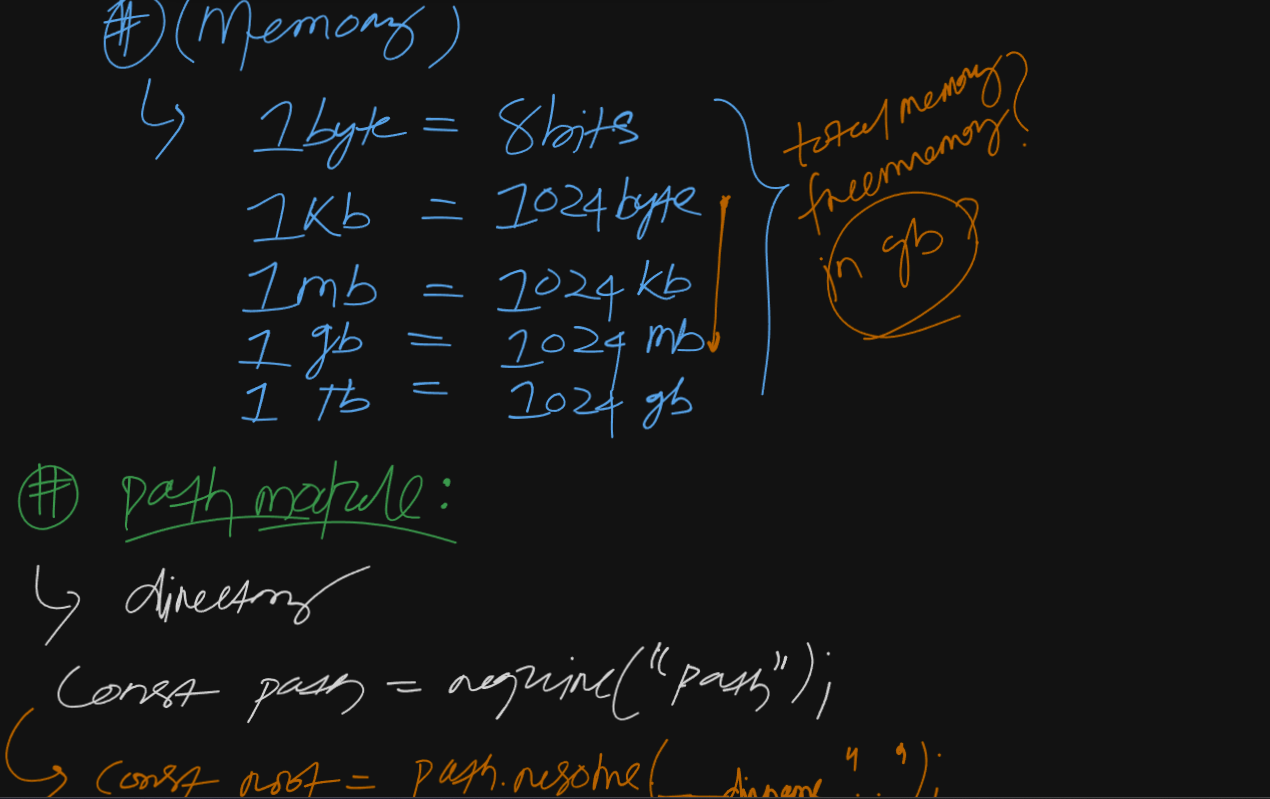 # (Memory)
↳ 1 byte = 8 bits
1 Kb = 1024 byte
1 mb = 1024 kb
1 gb = 1024 mb
1 Tb = 1024 gb
total memory
freememory?
in gb?
# path module:
↳ directory
const path = require("path");
↳ const root = path.resolve(__dirname "..");